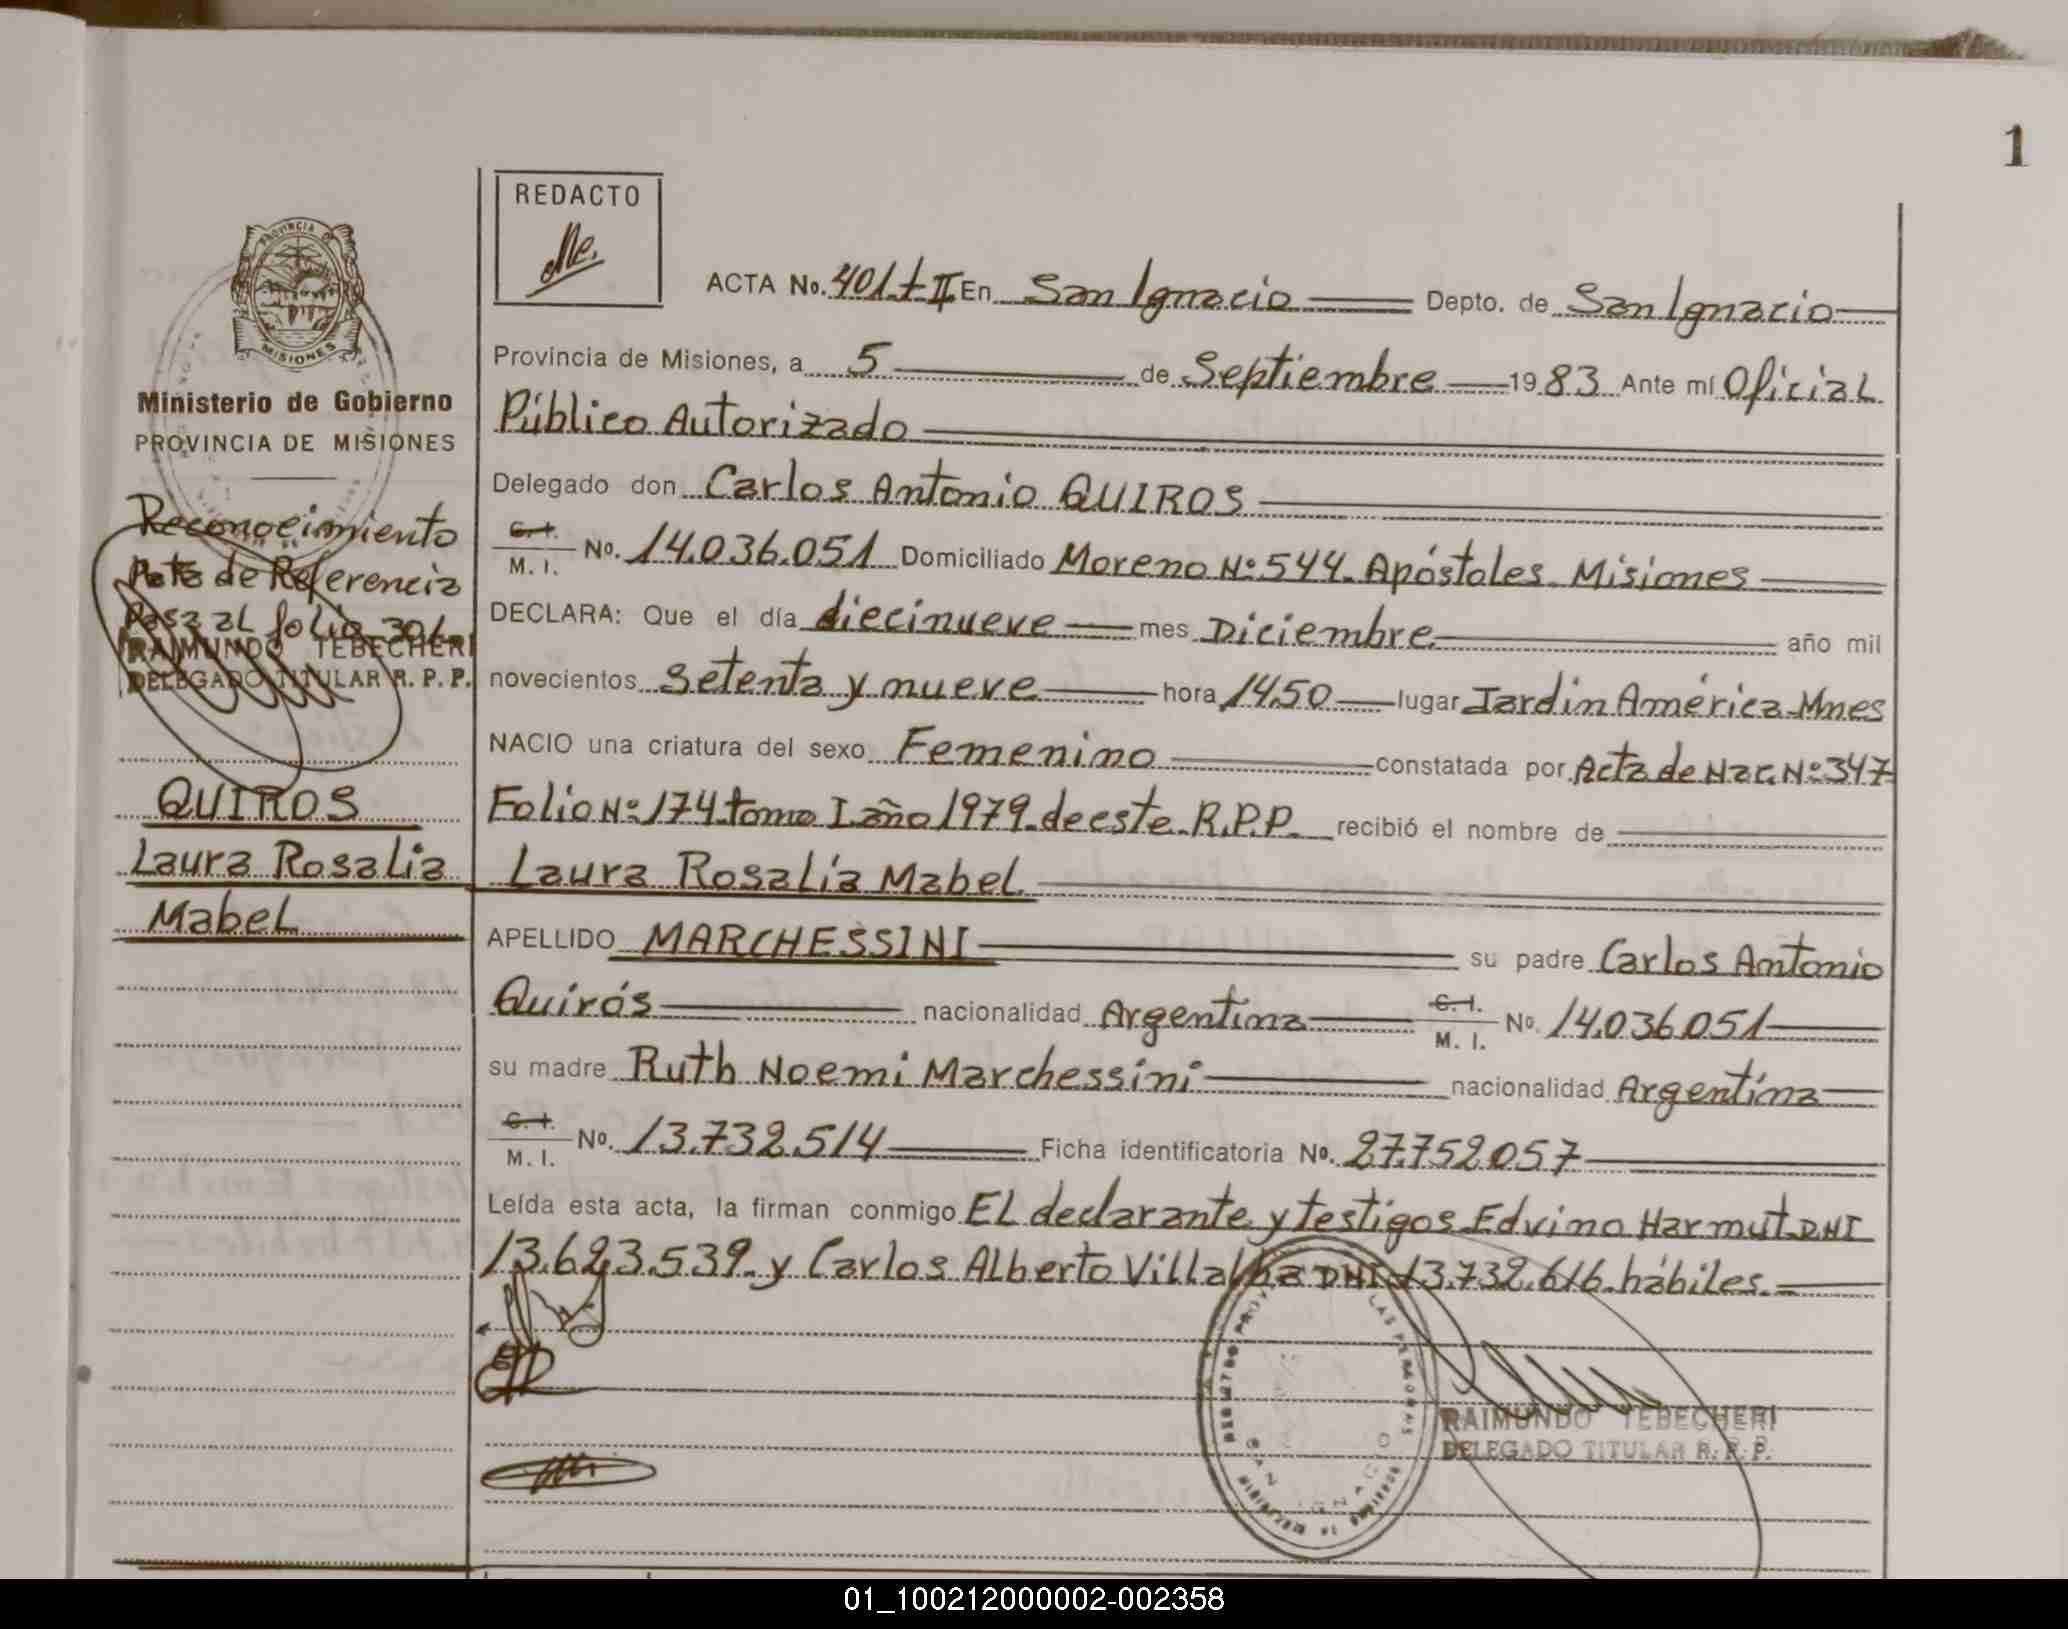 1
REDACTO
PROVINCIA DE
MISIONES
Ministerio de Gobierno
PROVINCIA DE MISIONES
Reconocimiento
Acta de Referencia
Pasa al folio 301
RAIMUNDO TEBECHERI
DELEGADO TITULAR R. P. P.
QUIROS
Laura Rosalia
Mabel
ACTA No. 401 t II En San Ignacio Depto. de San Ignacio
Provincia de Misiones, a 5 de Septiembre 1983 Ante mí Oficial
Público Autorizado
Delegado don Carlos Antonio QUIROS
C. I.
M. I. No. 14.036.051 Domiciliado Moreno Nº 544. Apóstoles Misiones
DECLARA: Que el día diecinueve mes Diciembre año mil
novecientos setenta y nueve hora 14.50 lugar Jardin América-Mnes
NACIO una criatura del sexo Femenino constatada por Acta de Nac. Nº 347
Folio Nº 174 tomo I año 1979 de este R.P.P. recibió el nombre de
Laura Rosalía Mabel
APELLIDO MARCHESSINI su padre Carlos Antonio
Quirós nacionalidad Argentina C. I.
M. I. No. 14.036.051
su madre Ruth Noemi Marchessini nacionalidad Argentina
C. I.
M. I. No. 13.732.514 Ficha identificatoria No. 27.752.057
Leída esta acta, la firman conmigo El declarante y testigos Edvino Harmut DNI
13.623.539 y Carlos Alberto Villalba DNI 13.732.616 hábiles.
RAIMUNDO TEBECHERI
DELEGADO TITULAR R. P. P.
SAN IGNACIO
01_100212000002-002358